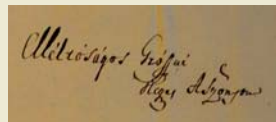 Méltóságos Gróffné
Kegyes Aszszonyom